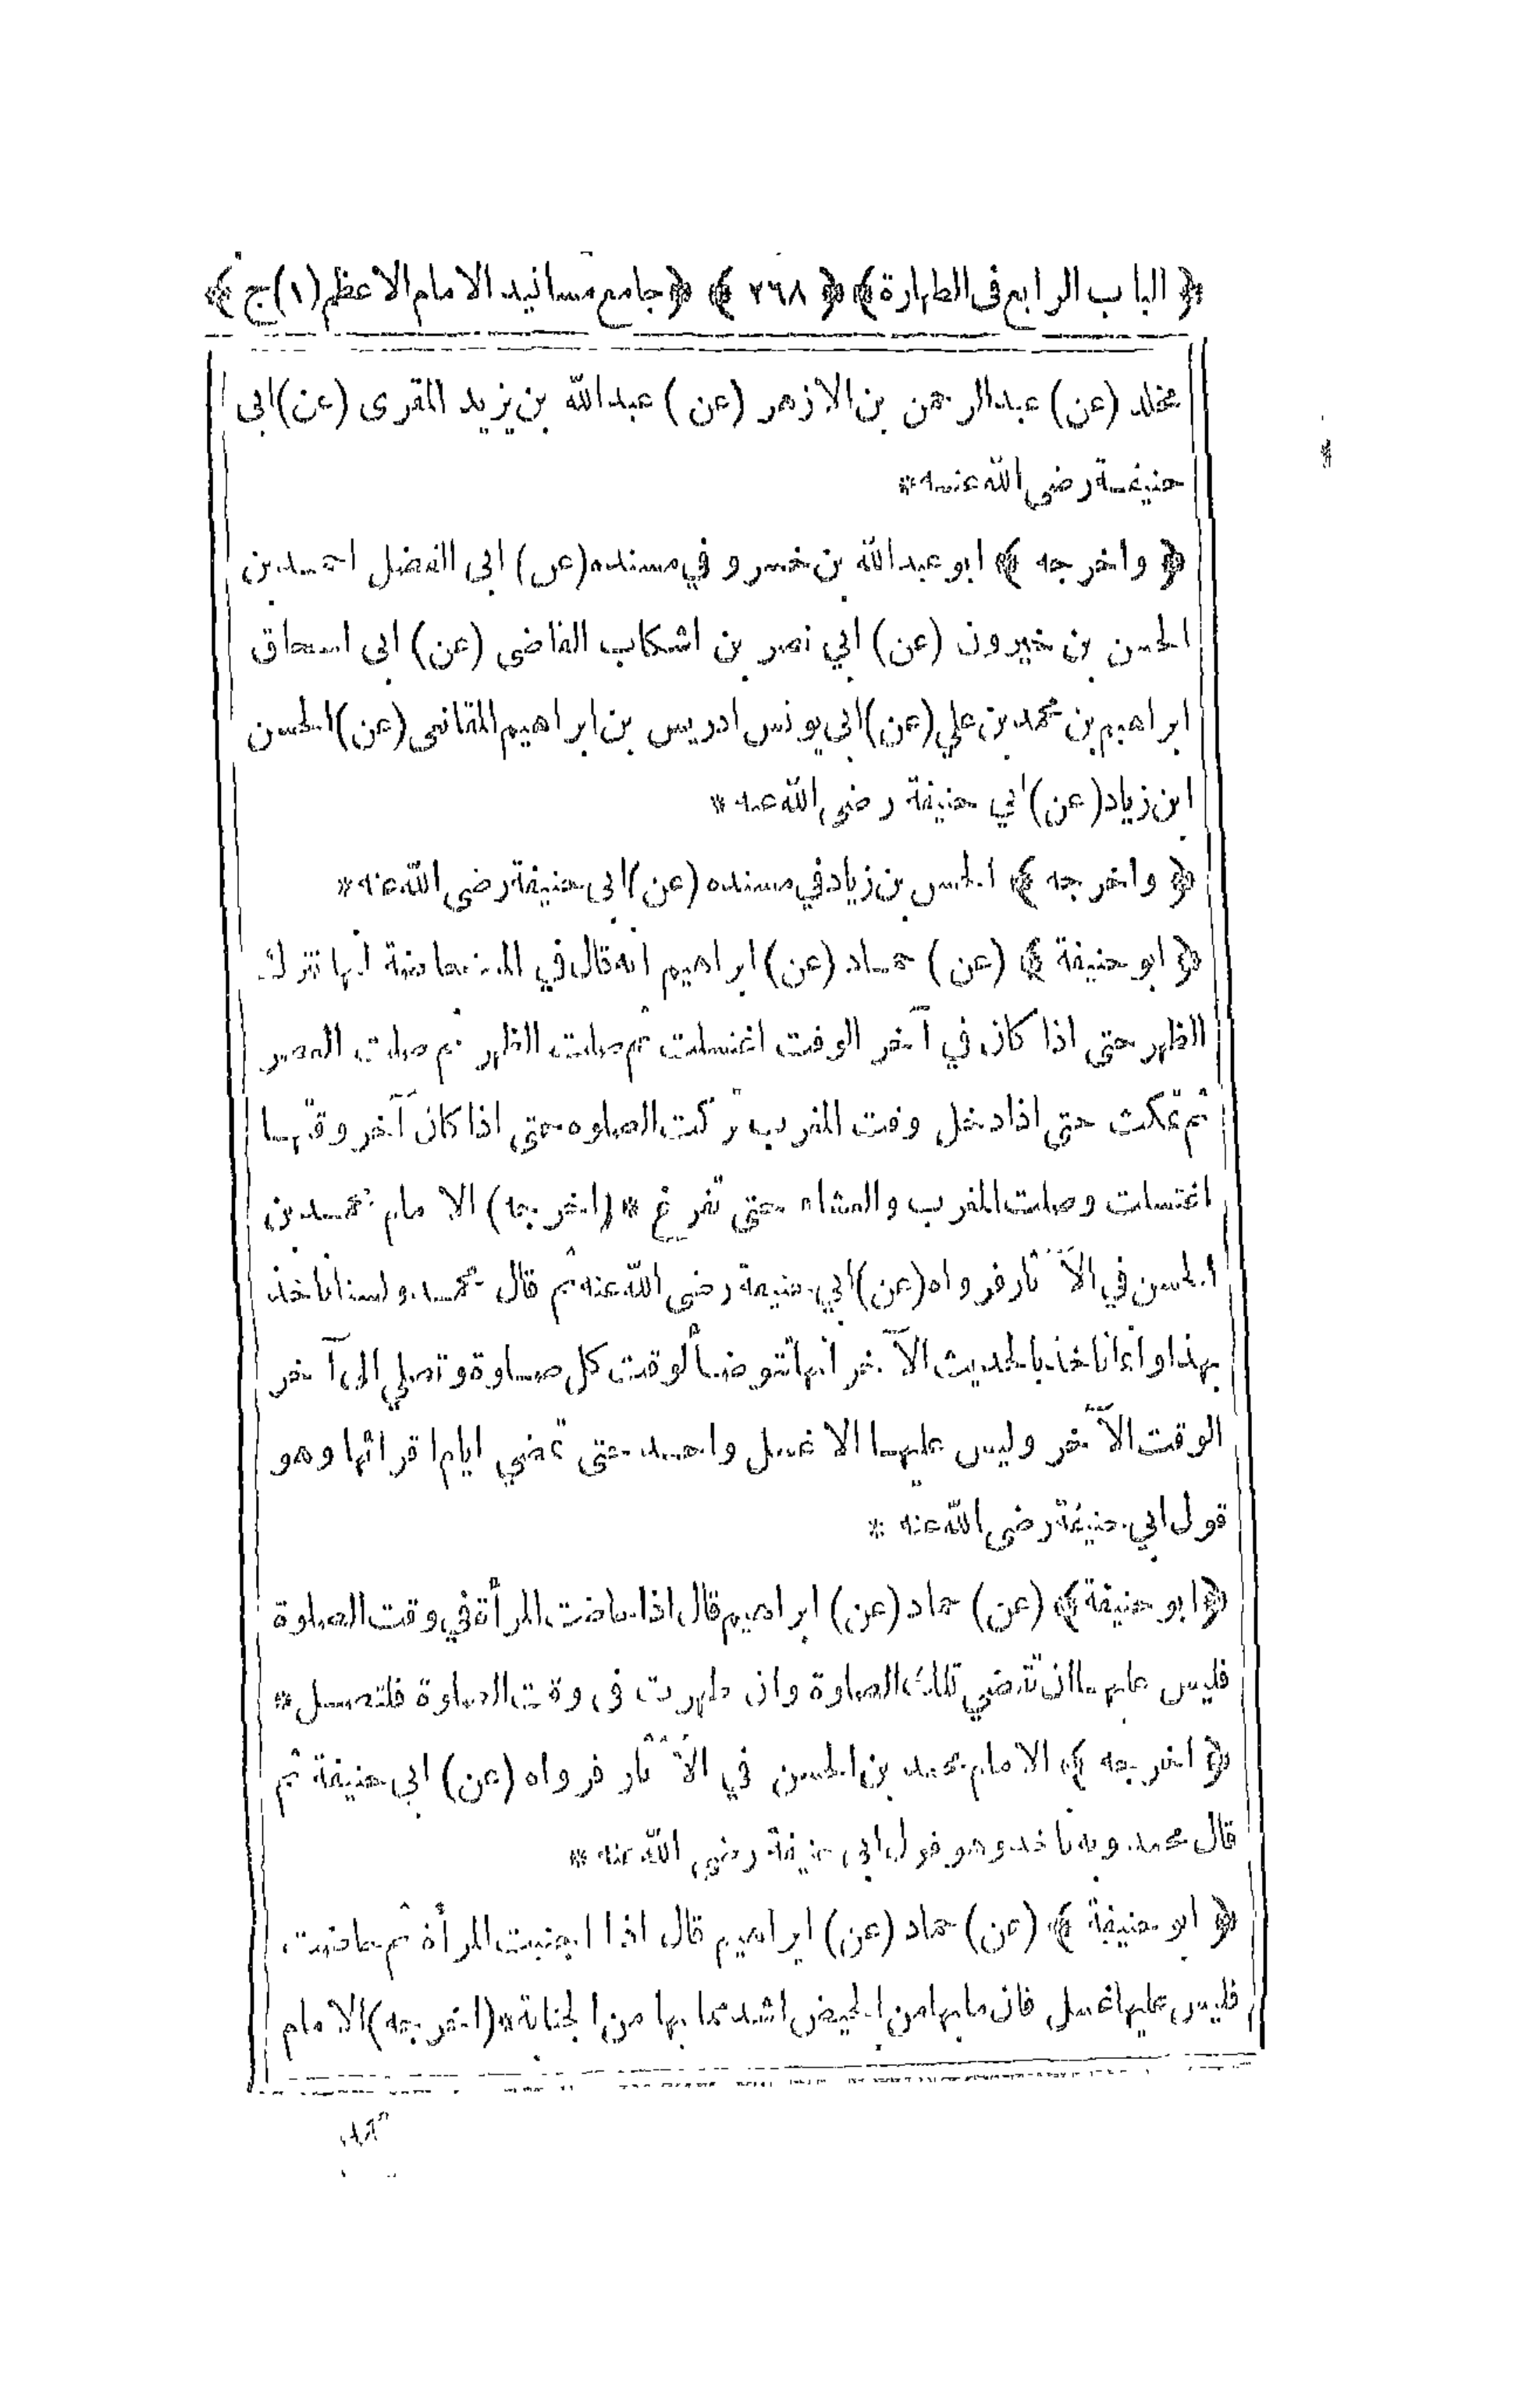 ﴿ الباب الرابع فى الطهارة ﴾ ﴿ ٢٦٨ ﴾ ﴿ جامع مسانيد الامام الاعظم (١) ج ﴾
مخلد (عن) عبد الرحمن بن الازهر (عن) عبد الله بن يزيد المقرى (عن) ابى
حنيفة رضى الله عنه *
﴿ واخرجه ﴾ ابو عبد الله بن خسرو في مسنده (عن) ابى الفضل احمد بن
الحسن بن خيرون (عن) ابي نصر بن اشكاب القاضى (عن) ابى اسحاق
ابراهيم بن محمد بن علي (عن) ابى يونس ادريس بن ابراهيم المقانعى (عن) الحسن
ابن زياد (عن) ابي حنيفة رضى الله عنه *
﴿ واخرجه ﴾ الحسن بن زياد في مسنده (عن) ابى حنيفة رضى الله عنه *
﴿ ابو حنيفة ﴾ (عن) حماد (عن) ابراهيم انه قال في المستحاضة انها تترك
الظهر حتى اذا كان في آخر الوقت اغتسلت ثم صلت الظهر ثم صلت العصر
ثم تمكث حتى اذا دخل وقت المغرب تركت الصلوة حتى اذا كان آخر وقتها
اغتسلت وصلت المغرب والعشاء حتى تفرغ * (اخرجه) الامام محمد بن
الحسن في الآثار فرواه (عن) ابي حنيفة رضى الله عنه ثم قال محمد ولسنا ناخذ
بهذا وانما ناخذ بالحديث الآخر انها تتوضأ لوقت كل صلوة وتصلي الى آخر
الوقت الآخر وليس عليها الا غسل واحد حتى تمضي ايام اقرائها وهو
قول ابي حنيفة رضى الله عنه *
﴿ ابو حنيفة ﴾ (عن) حماد (عن) ابراهيم قال اذا حاضت المرأة في وقت الصلوة
فليس عليها ان تقضي تلك الصلوة وان طهرت فى وقت الصلوة فلتصل *
﴿ اخرجه ﴾ الامام محمد بن الحسن في الآثار فرواه (عن) ابى حنيفة ثم
قال محمد وبه ناخذ وهو قول ابى حنيفة رضى الله عنه *
﴿ ابو حنيفة ﴾ (عن) حماد (عن) ابراهيم قال اذا اجنبت المرأة ثم حاضت
فليس عليها غسل فان ما بها من الحيض اشد مما بها من الجنابة * (اخرجه) الامام